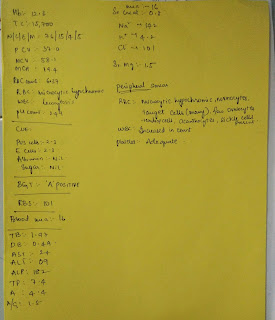 Hb:- 12.3
TC:- 15,700
N/L/E/M:- 76/15/4/5
PCV:- 37.0
MCV:- 58.1
MCH:- 19.4
RBC count:- 6.37
RBS:- Microcytic hypochromic
WBC:- leucocytosis
plt count:- 2.49
CUE:-
Pus cells:- 2-3
E. cells:- 2-3
Albumin:- Nil
Sugar:- Nil
BGT:- 'A' POSITIVE
RBS:- 101
Blood urea:- 16
TB:- 1.92
DB:- 0.49
AST:- 24
ALT:- 09
ALP:- 182
TP:- 7.4
A:- 4.4
A/G:- 1.5
Sr creat:- 0.8
Na⁺:- 142
K⁺:- 4.2
Cl⁻:- 101
Sr. Mg:- 1.5
Peripheral smear
RBC:- Microcytic hypochromic, microcytes,
Target cells (many), few ovalocytes,
acanthocytes, sickle cells
present
WBC:- Increased in count
platelets:- Adequate